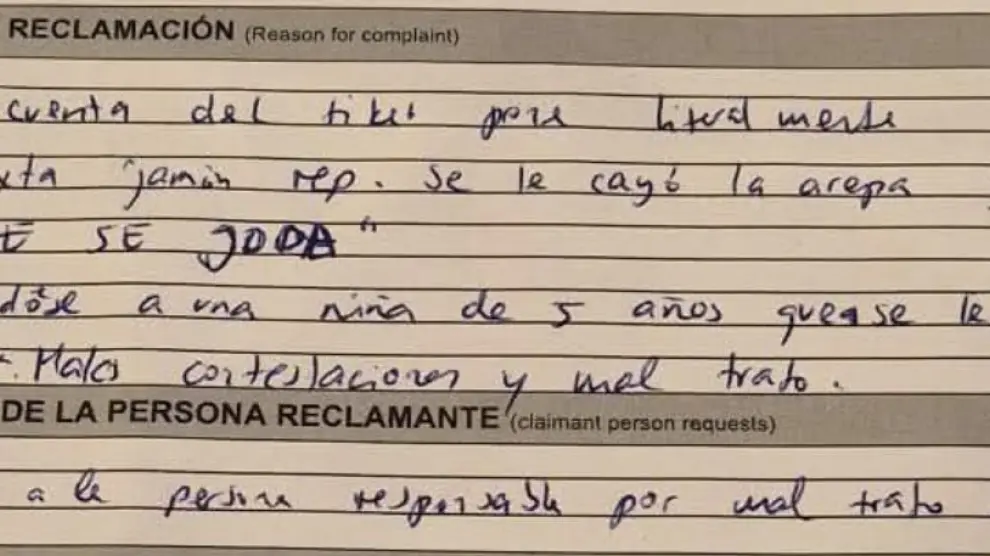 RECLAMACIÓN (Reason for complaint)
cuenta del tiket pone literalmente
"jamón rep. Se le cayó la arepa
E SE JODA"
dóse a una niña de 5 años que se le
Malas contestaciones y mal trato.
DE LA PERSONA RECLAMANTE (claimant person requests)
a la persona responsable por mal trato